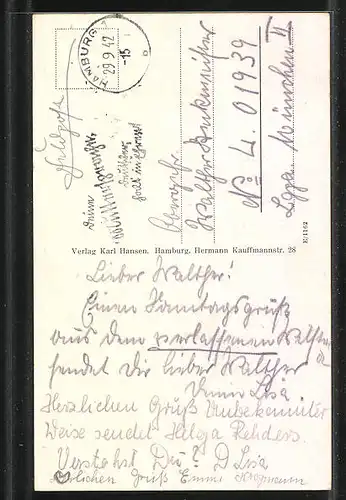 HAMBURG 1
29.9.42
-15
Feldpost
Walther
No L 01939
Lgpa München II
Verlag Karl Hansen. Hamburg. Hermann Kauffmannstr. 28
E/1162
Lieber Walther!
Einen Sonntagsgruß
aus dem verlassenen
sendet Dir lieber Walther
Deine Lisa
Herzlichen Gruß Unbekannter
Weise sendet Helga Rehders.
Verstehst Du? D Lisa
Herzlichen Gruß Emmi